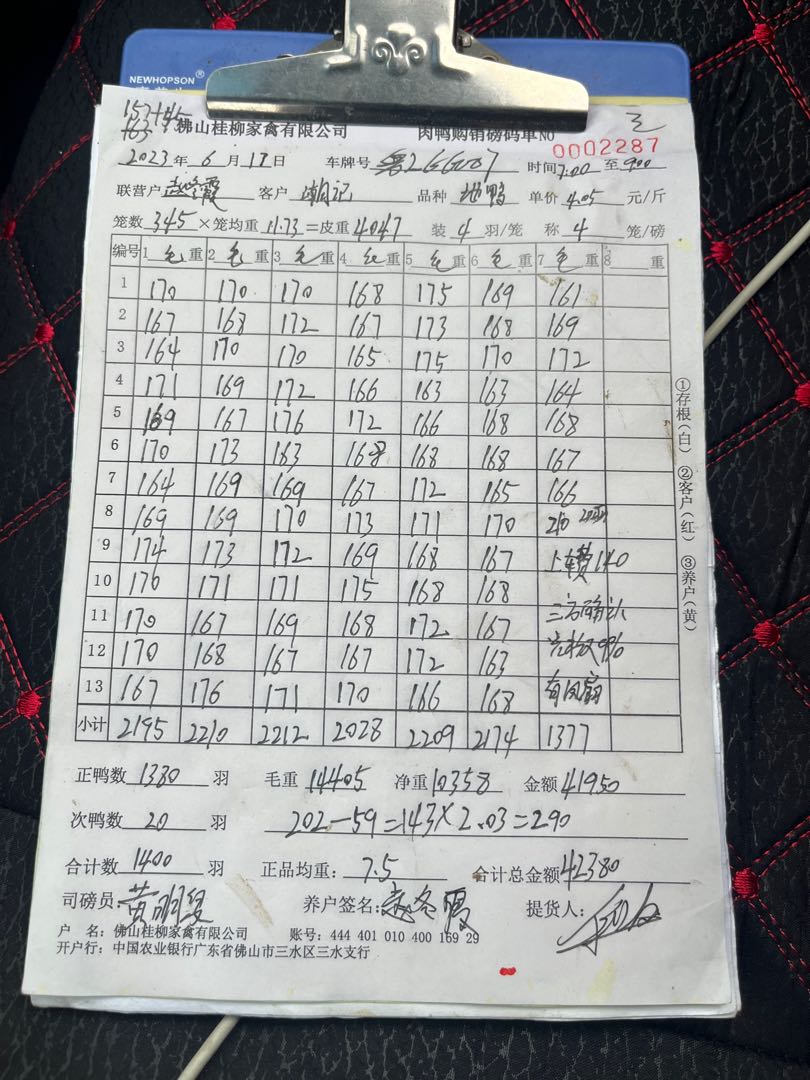 NEWHOPSON®
157+145
163
佛山桂柳家禽有限公司 肉鸭购销磅码单NO 0002287
2023年6月18日 车牌号 时间7:00至9:00
联营户 客户潮记 品种 地鸭 单价4.05元/斤
笼数345×笼均重11.73=皮重4047 装4羽/笼 称4笼/磅
编号 1毛重 2毛重 3毛重 4毛重 5毛重 6毛重 7毛重 8 重
1 170 170 170 168 175 169 161
2 167 168 172 167 173 168 169
3 164 170 170 165 175 170 172
4 171 169 172 166 163 163 164
5 169 167 176 172 166 168 168
6 170 173 163 168 168 168 167
7 164 169 169 167 172 165 166
8 169 169 170 173 171 170 210
9 174 173 172 169 168 167 上车费140
10 170 171 171 175 168 168
11 170 167 169 168 172 167 三方确认
12 170 168 167 167 172 163
13 167 176 171 170 166 168
小计 2195 2210 2212 2028 2209 2174 1377
正鸭数1380羽 毛重14405 净重10358 金额41950
次鸭数20羽 202-59=143×2.03=290
合计数1400羽 正品均重:7.5 合计总金额42380
司磅员 养户签名: 提货人:
户 名:佛山桂柳家禽有限公司 账号:444 401 010 400 169 29
开户行:中国农业银行广东省佛山市三水区三水支行
①存根(白) ②客户(红) ③养户(黄)